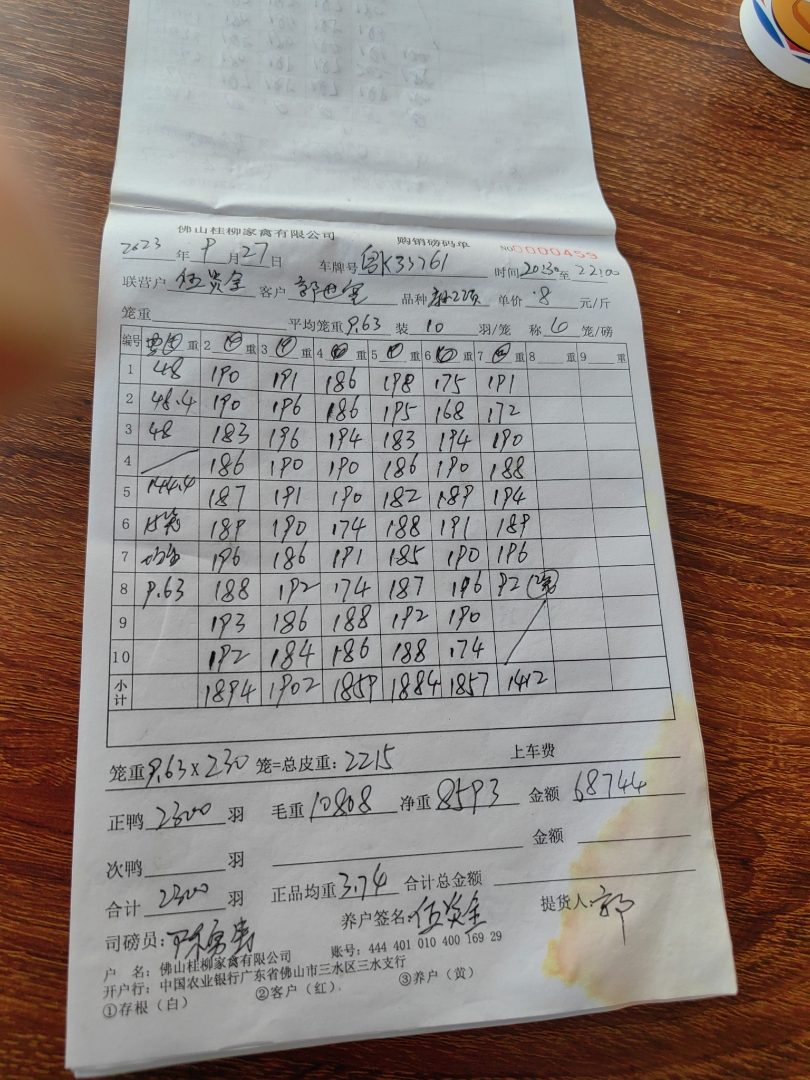 佛山桂柳家禽有限公司 购销磅码单 NO0000459
2023 年 9 月 27 日 车牌号 粤K35761 时间 20:30 至 22:00
联营户 伍贤金 客户 品种 单价 8 元/斤
笼重 平均笼重 9.63 装 10 羽/笼 称 6 笼/磅
编号 重 2 重 3 重 4 重 5 重 6 重 7 重 8 重 9 重
1 48 190 191 186 198 175 191
2 48.4 190 196 186 195 168 172
3 48 183 196 194 183 194 190
4 186 190 190 186 190 188
5 144.4 187 191 190 182 189 194
6 15笼 189 190 174 188 191 189
7 196 186 191 185 190 196
8 9.63 188 192 174 187 196 92
9 193 186 188 192 190
10 192 184 186 188 174
小计 1894 1902 1859 1884 1857 1412
笼重 9.63 x 230 笼=总皮重: 2215 上车费
正鸭 2300 羽 毛重 10808 净重 8593 金额 68744
次鸭 羽 金额
合计 2300 羽 正品均重 3.74 合计总金额
司磅员: 养户签名: 伍贤金 提货人: 郭
户 名: 佛山桂柳家禽有限公司 账号: 444 401 010 400 169 29
开户行: 中国农业银行广东省佛山市三水区三水支行
①存根（白） ②客户（红） ③养户（黄）